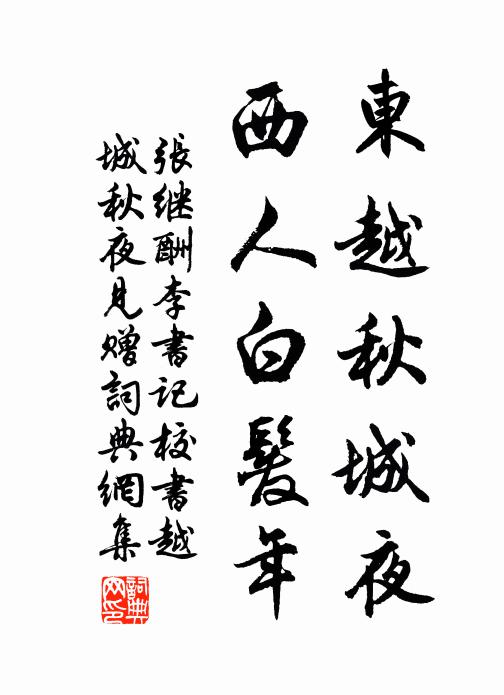 東越秋城夜
西人白髮年
張继酬李書记校書越
城秋夜見贈詞典網集
詞典
网印